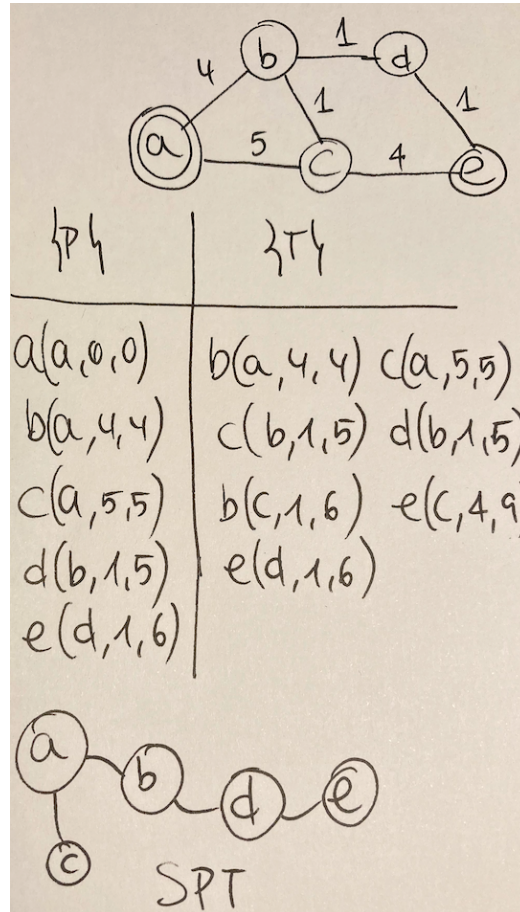 b 1 d
4 1 1
a 5 c 4 e
{P} {T}
a(a,0,0) b(a,4,4) c(a,5,5)
b(a,4,4) c(b,1,5) d(b,1,5)
c(a,5,5) b(c,1,6) e(c,4,9
d(b,1,5) e(d,1,6)
e(d,1,6)
a b d e
c
SPT